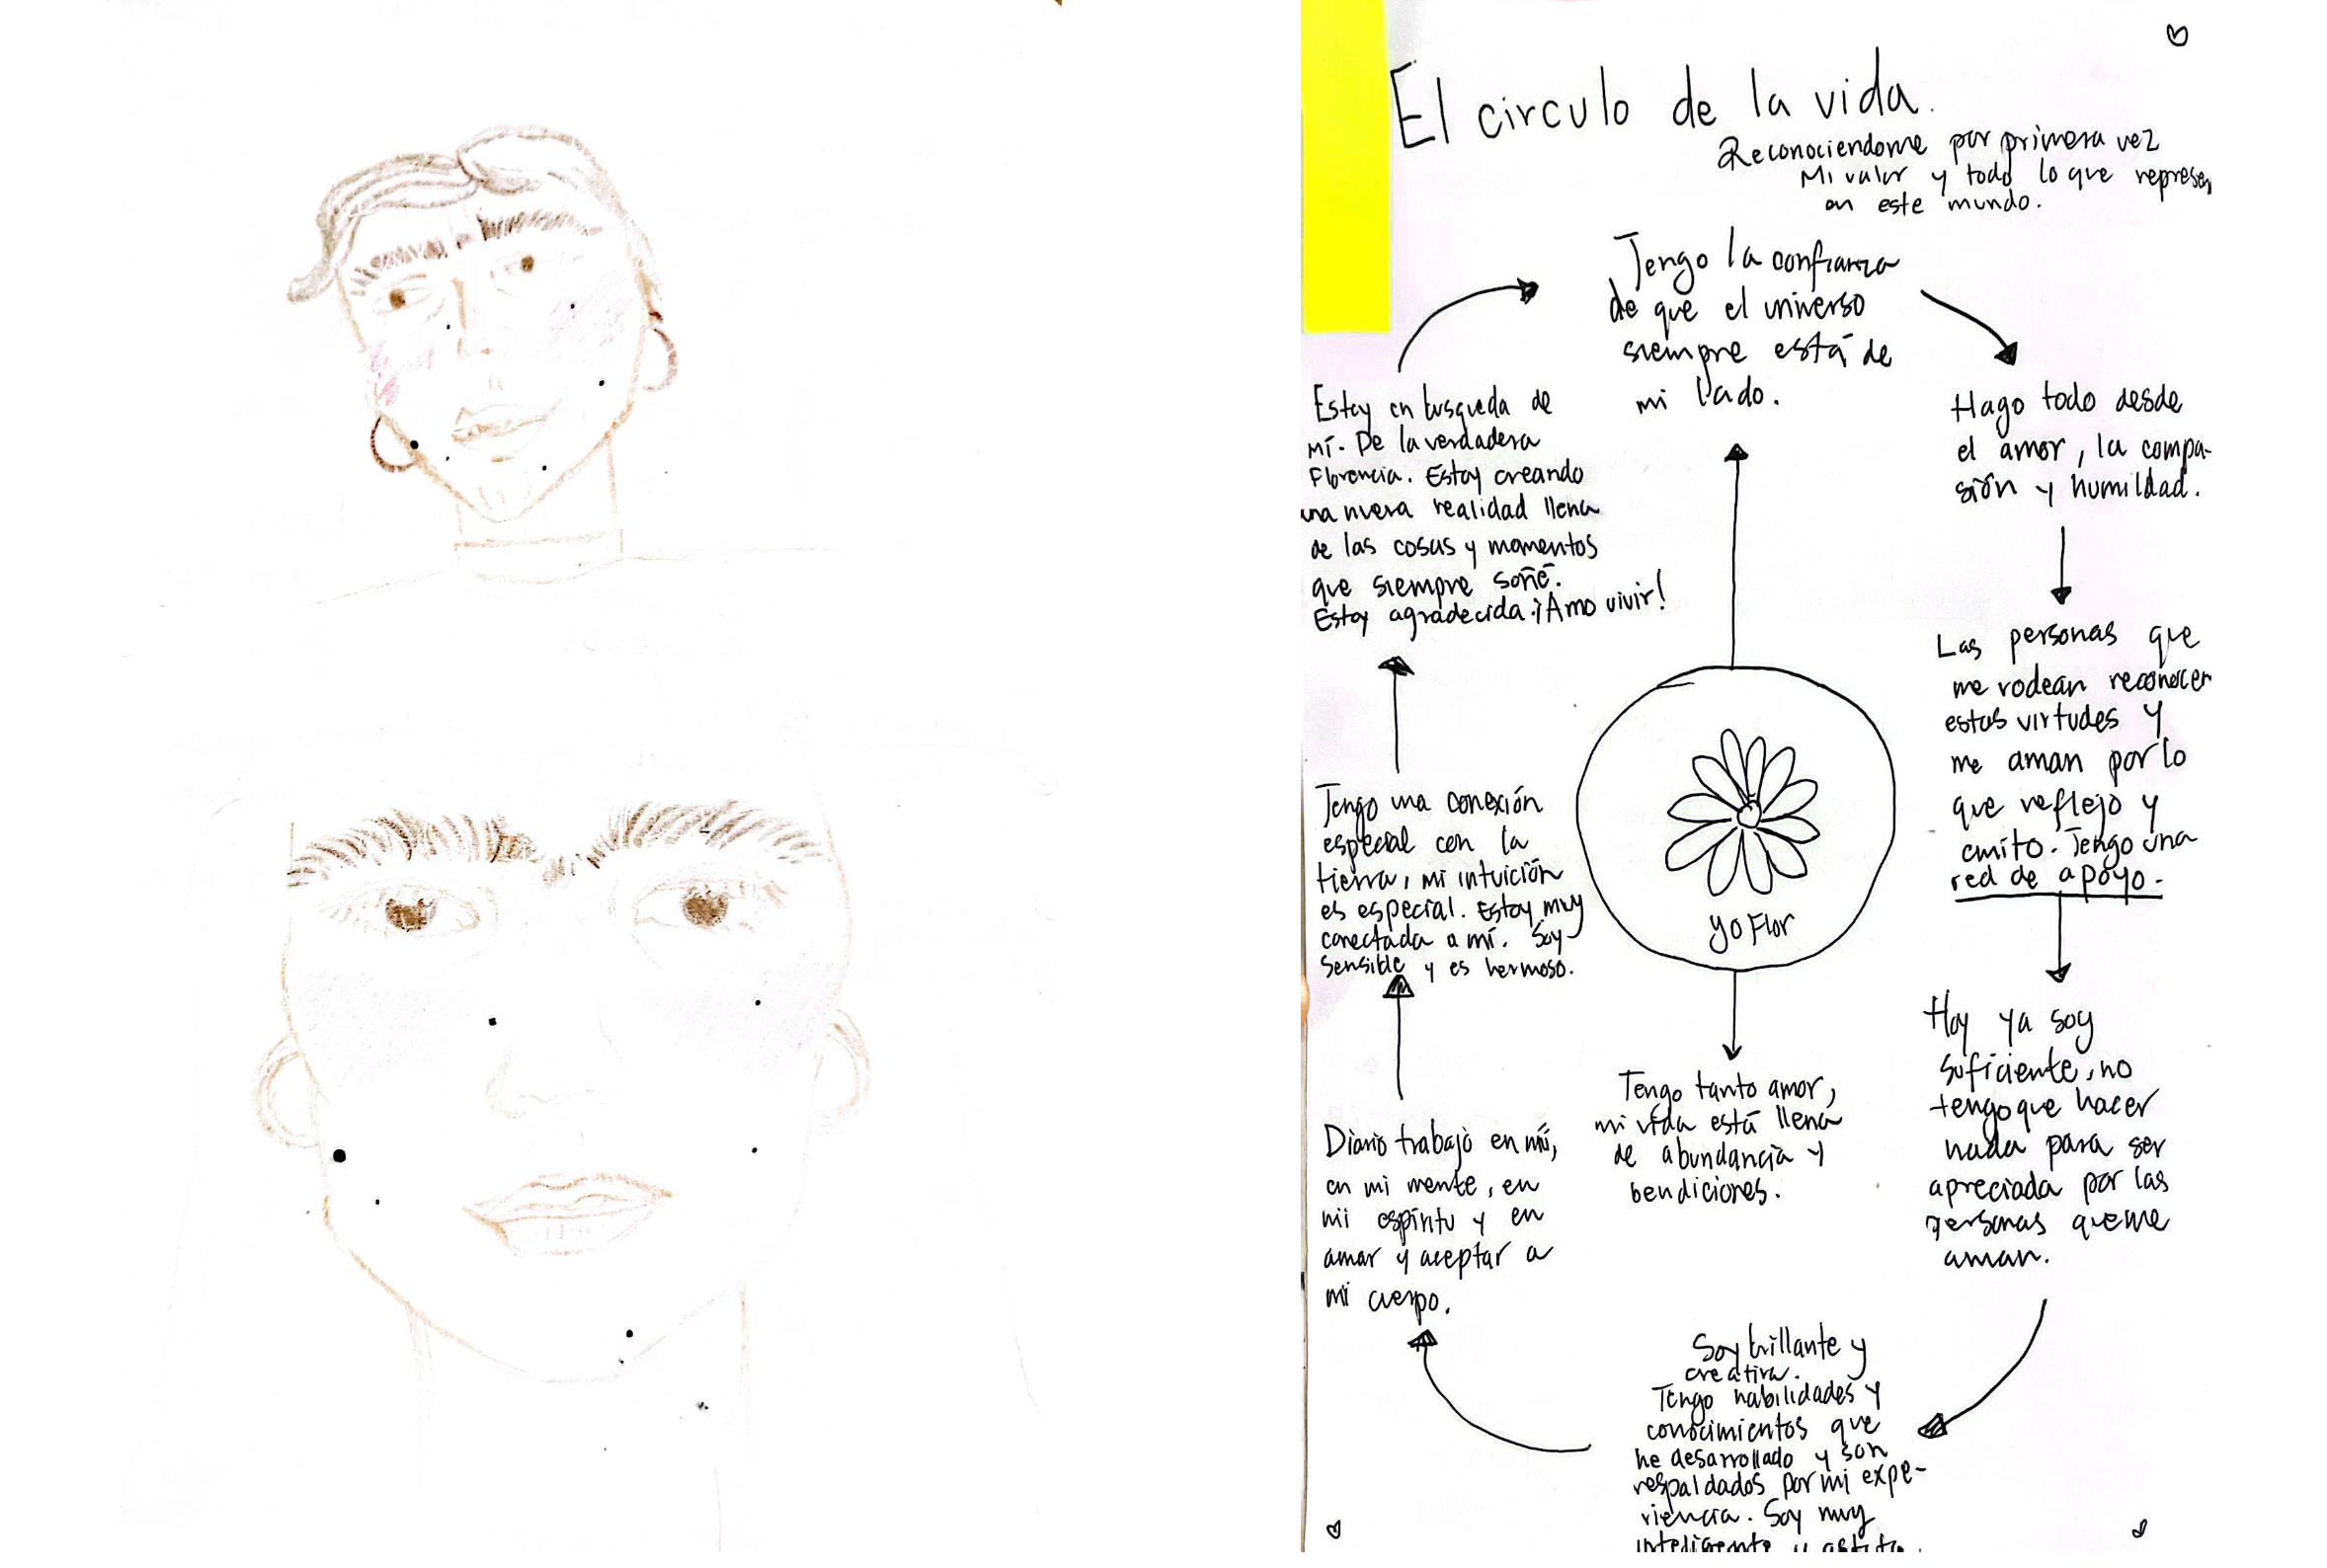 El circulo de la vida.
Reconociendome por primera vez
Mi valor y todo lo que represen
en este mundo.
Tengo la confianza
de que el universo
siempre está de
mi lado.
Hago todo desde
el amor, la compa-
sión y humildad.
Las personas que
me rodean reconocen
estas virtudes y
me aman por lo
que reflejo y
emito. Tengo una
red de apoyo.
Hoy ya soy
suficiente, no
tengo que hacer
nada para ser
apreciada por las
personas que me
aman.
Soy brillante y
creativa.
Tengo habilidades y
conocimientos que
he desarrollado y son
respaldados por mi expe-
riencia. Soy muy
inteligente y astuta.
Diario trabajo en mí,
en mi mente, en
mi espíritu y en
amar y aceptar a
mi cuerpo.
Tengo una conexión
especial con la
tierra, mi intuición
es especial. Estoy muy
conectada a mí. Soy
sensible y es hermoso.
Estoy en busqueda de
mí. De la verdadera
Florencia. Estoy creando
una nueva realidad llena
de las cosas y momentos
que siempre soñé.
Estoy agradecida. ¡Amo vivir!
yo Flor
Tengo tanto amor,
mi vida está llena
de abundancia y
bendiciones.